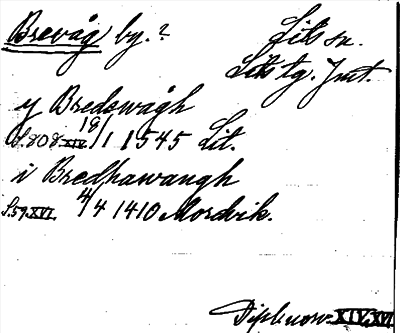 Brevåg by.? Lits sn.
Lits tg. Jmt.
y Bredewågh
S. 808 XIV. 18/1 1545 Lit.
i Bredhawaugh
S. 59. XVI. 4/4 1410 Mordvik.
Dipl. norv. XIV, XVI